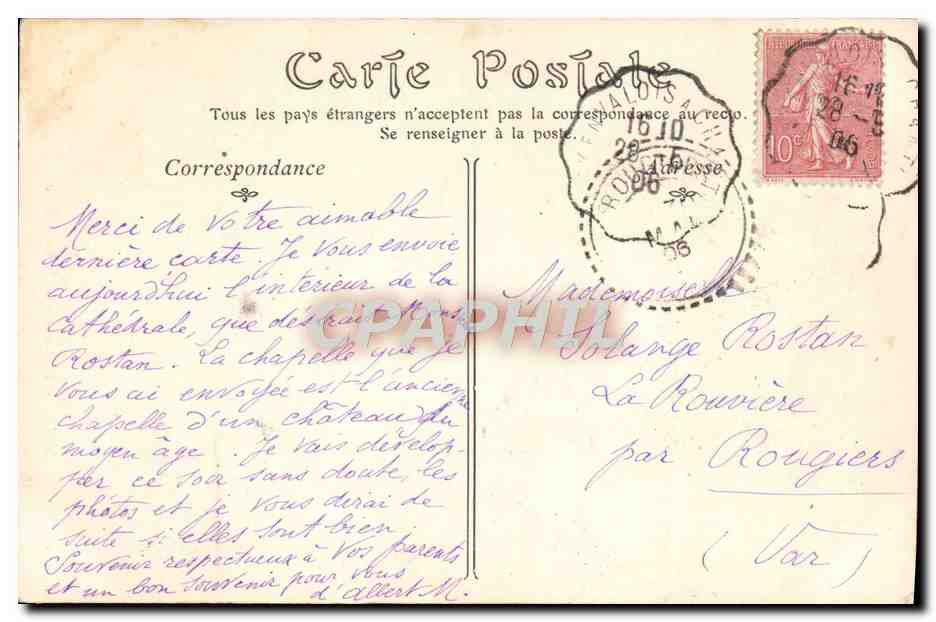 Carte Postale
Tous les pays étrangers n'acceptent pas la correspondance au recto.
Se renseigner à la poste.
Correspondance
Adresse
Merci de votre aimable
dernière carte. Je vous envoie
aujourd'hui l'intérieur de la
Cathédrale, que désirait Mons.
Rostan. La chapelle que je
vous ai envoyée est l'ancienne
chapelle d'un château du
moyen âge. Je vais dévelop-
per ce soir sans doute les
photos et je vous dirai de
suite si elles sont bien.
Souvenir respectueux à vos parents
et un bon souvenir pour vous
d'Albert M.
Mademoiselle
Solange Rostan
La Rouvière
par Rougiers
(Var)
VALOIS A CHA
16 10
28 -5
06
ROU
MAI
06
10c
16
28 -5
06
CPAPHIL